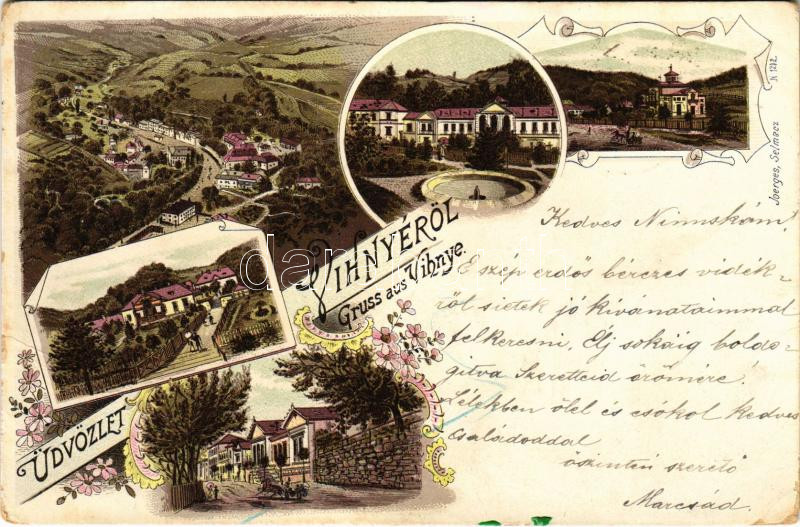 ÜDVÖZLET
VIHNYÉRŐL
Gruss aus Vihnye.
N 1212.
Joerges, Selmecz
Kedves Ninuskám!
E szép erdős bérczes vidék-
ről sietek jó kívánataimmal
felkeresni. Élj sokáig boldo-
gitva Szeretteid örömére.
Lélekben ölel és csókol kedves
családoddal
őszintén szerető
Marcsád.